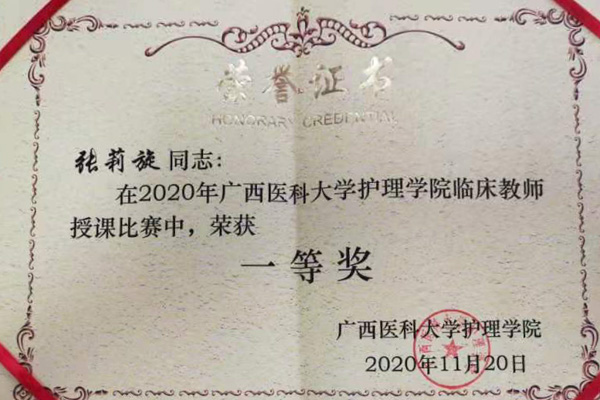 荣誉证书
HONORARY CREDENTIAL
张莉旋同志：
在2020年广西医科大学护理学院临床教师
授课比赛中，荣获
一等奖
广西医科大学护理学院
2020年11月20日